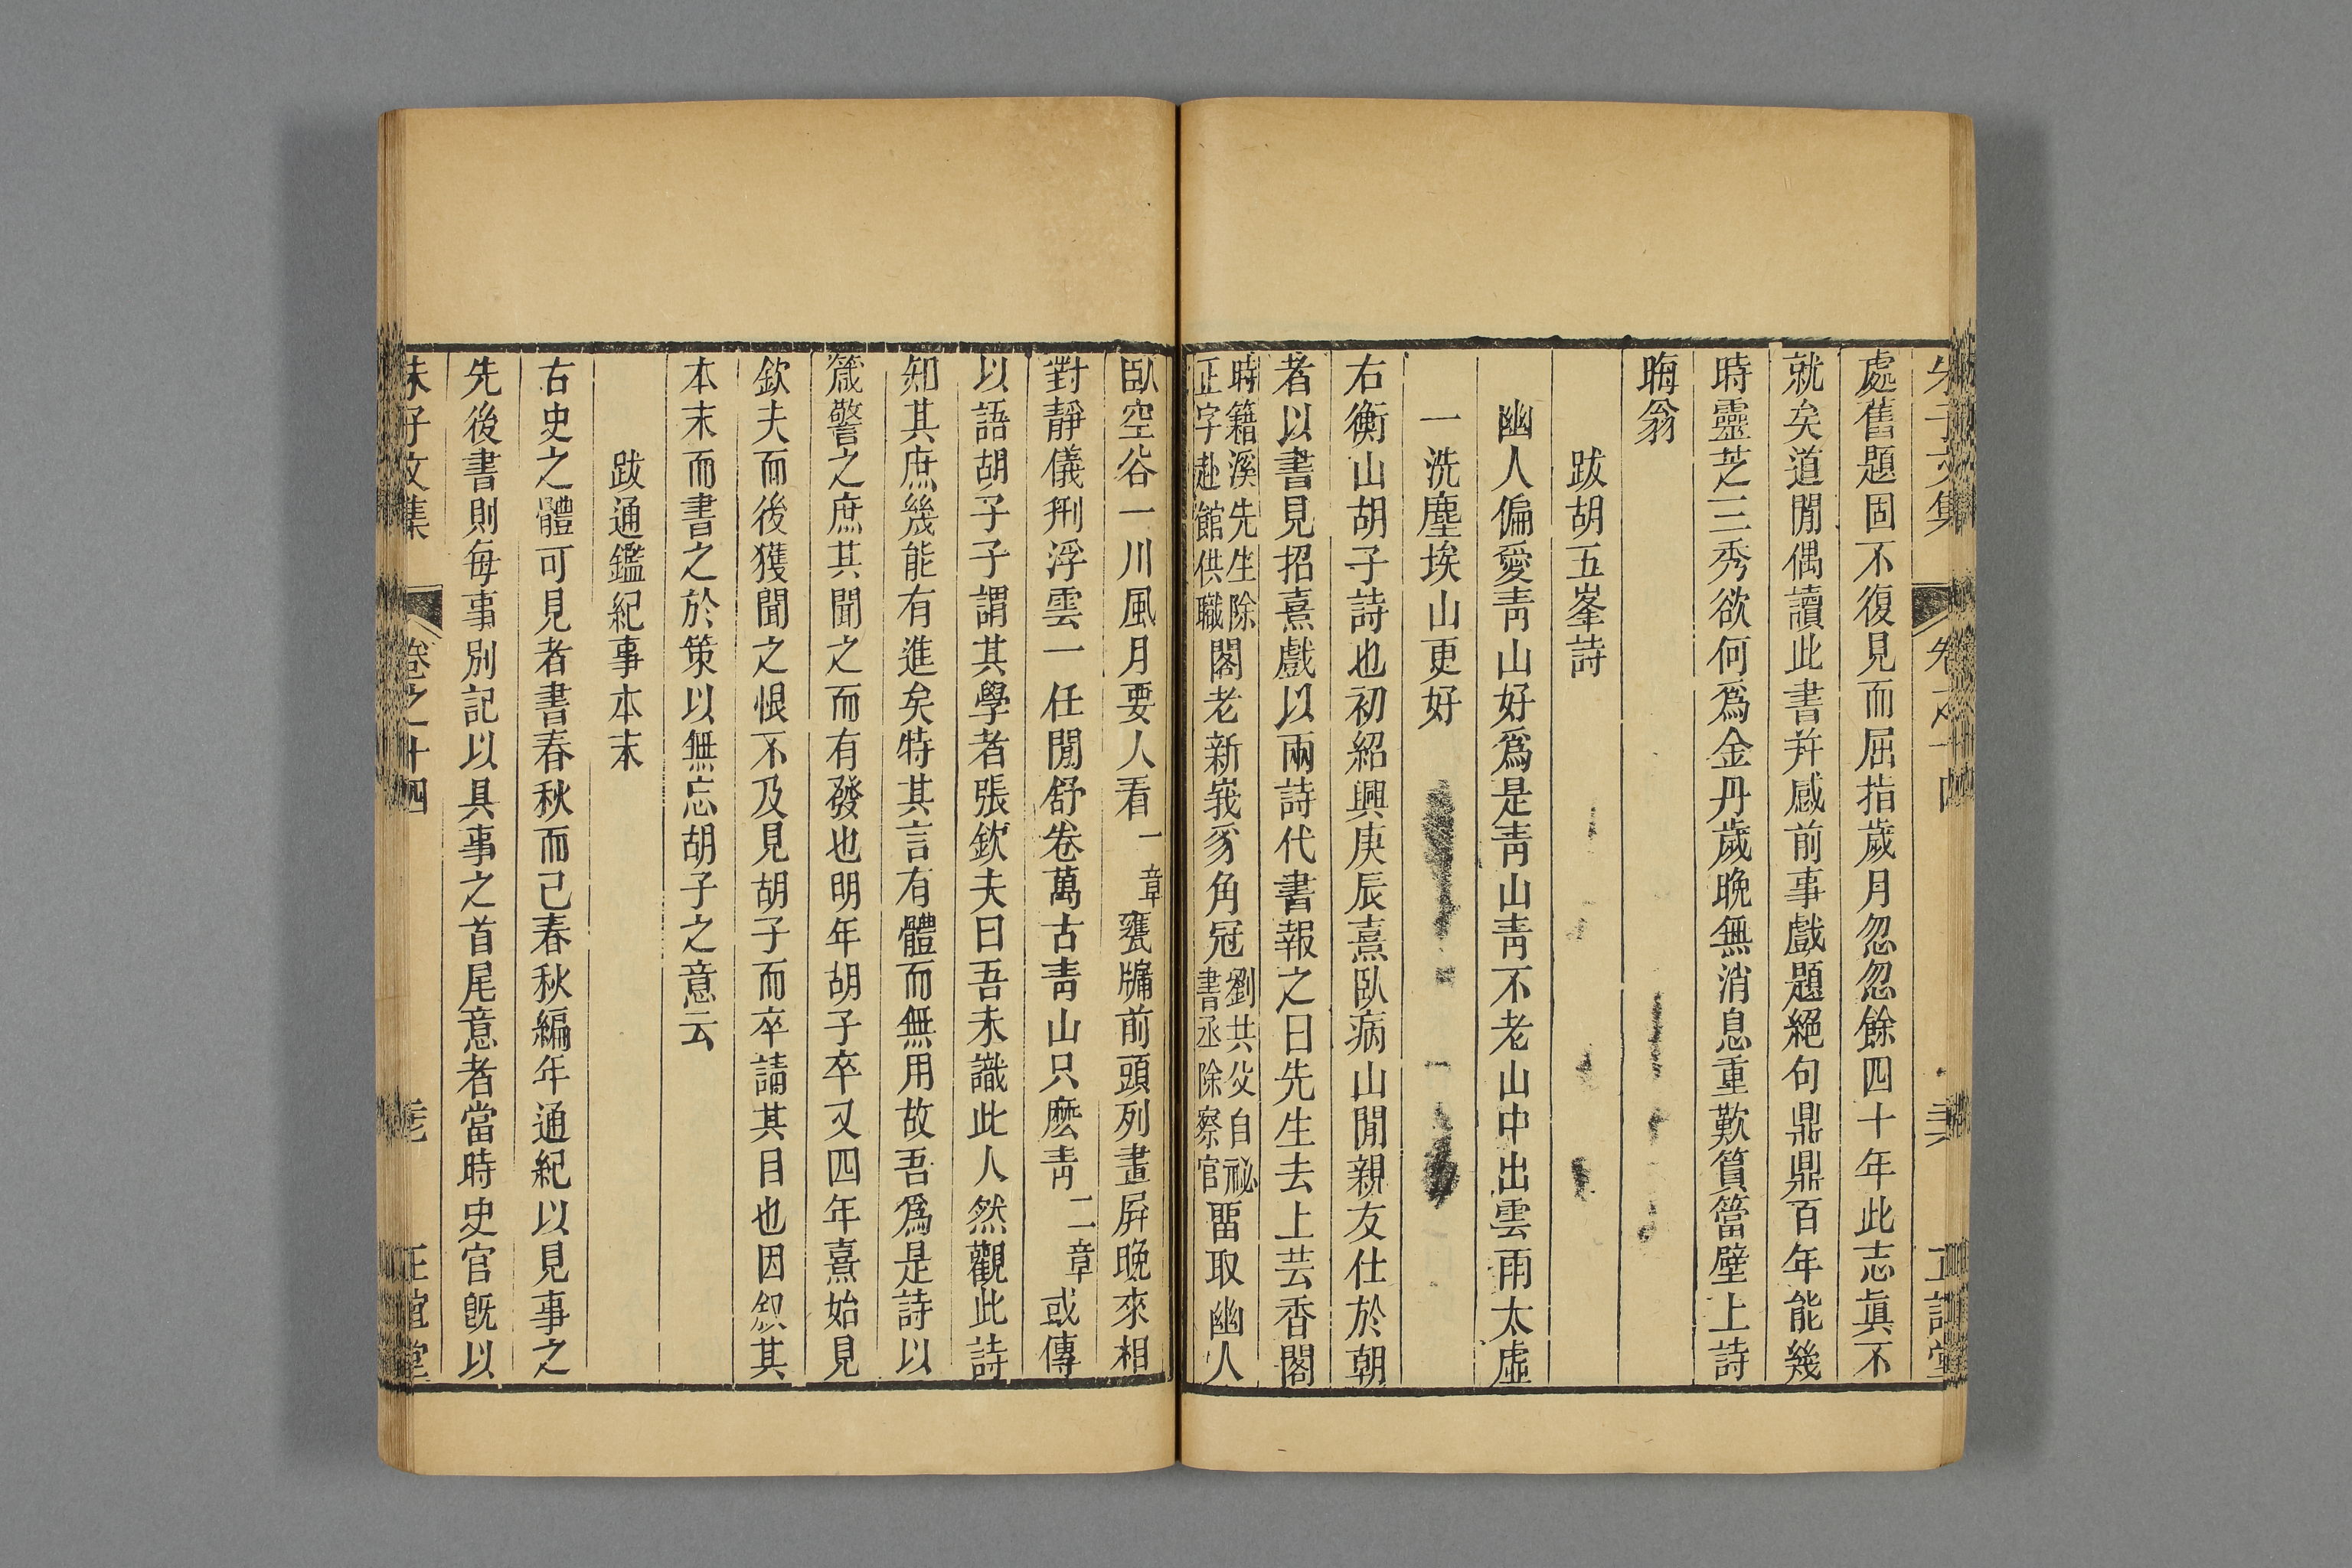 處舊題固不復見而屈指歲月忽忽餘四十年此志眞不
就矣道閒偶讀此書并感前事戲題絕句鼎鼎百年能幾
時靈芝三秀欲何爲金丹歲晚無消息重歎篔簹壁上詩
晦翁
跋胡五峯詩
幽人偏愛靑山好爲是靑山靑不老山中出雲雨太虛
一洗塵埃山更好
右衡山胡子詩也初紹興庚辰熹臥病山閒親友仕於朝
者以書見招熹戲以兩詩代書報之曰先生去上芸香閣
時籍溪先生除正字赴館供職閣老新峩豸角冠劉共父自祕書丞除察官畱取幽人
臥空谷一川風月要人看一章甕牖前頭列畫屏晚來相
對靜儀㓝浮雲一任閒舒卷萬古靑山只麽靑二章或傳
以語胡子子謂其學者張欽夫曰吾未識此人然觀此詩
知其庶幾能有進矣特其言有體而無用故吾爲是詩以
箴警之庶其聞之而有發也明年胡子卒又四年熹始見
欽夫而後獲聞之恨不及見胡子而卒請其目也因叙其
本末而書之於策以無忘胡子之意云
跋通鑑紀事本末
古史之體可見者書春秋而已春秋編年通紀以見事之
先後書則每事別記以具事之首尾意者當時史官旣以
朱子文集 卷之十四